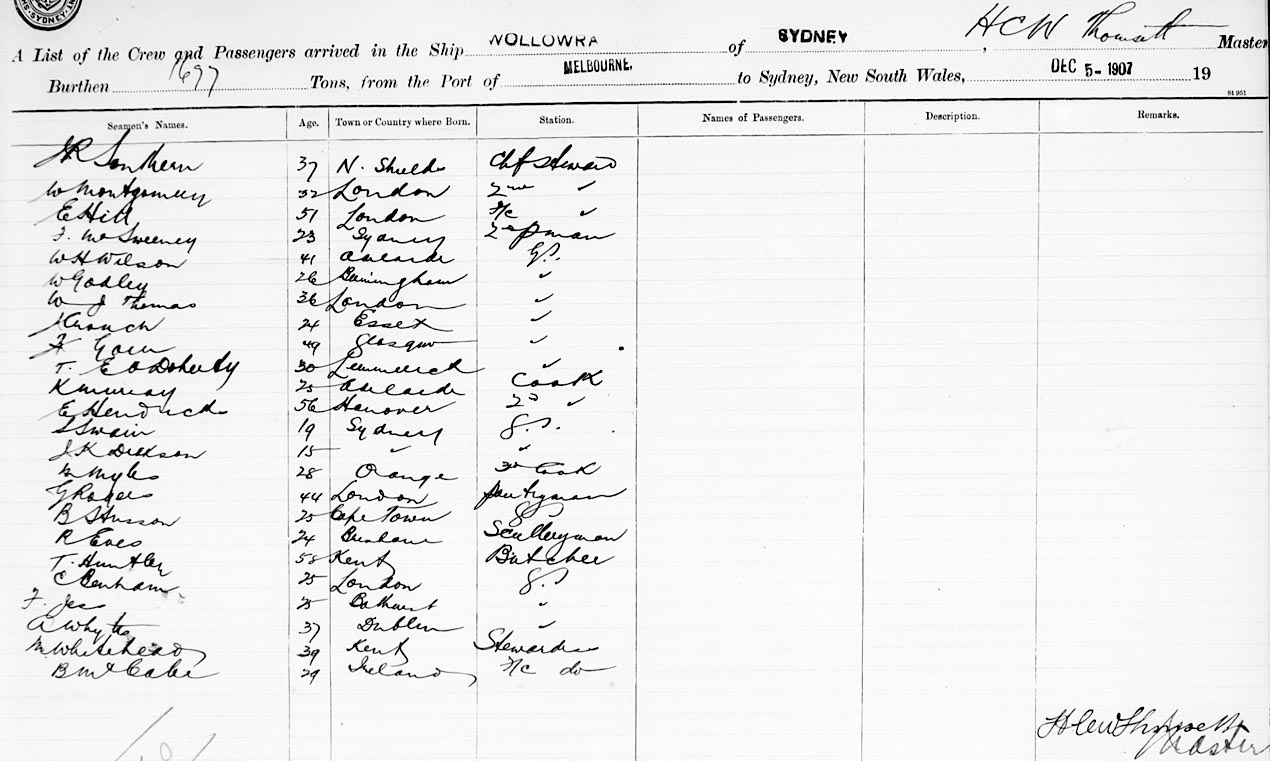 SYDNEY
A List of the Crew and Passengers arrived in the Ship WOLLOWRA of SYDNEY, HCW Thomsett Master
Burthen 1697 Tons, from the Port of MELBOURNE, to Sydney, New South Wales, DEC 5- 1907 19
St 951
Seamen's Names. Age. Town or Country where Born. Station. Names of Passengers. Description. Remarks.
JR Southern 37 N. Shields Chf Steward
W Montgomery 32 London 2nd "
E Hill 51 London F/c "
J. McSweeney 23 Sydney 2nd pman
WH Wilson 41 Adelaide G.S.
W Godley 26 Birmingham "
W J Thomas 36 London "
J Crouch 24 Essex "
49 Glasgow "
T. E O Doherty 30 Limmerick "
K Murray 25 Adelaide Cook
E Hendricks 56 Hanover 2nd "
S Swain 19 Sydney G.S.
J K Dickson 15 " "
M Myles 28 Orange 3rd Cook
G Rogers 44 London pantryman
B 25 Cape Town
R Eves 24 Brisbane Sculleryman
T. Huntley 58 Kent Butcher
C Benham 25 London G.S.
F. 25 Bathurst "
A Whyte 37 Dublin "
M Whitehead 39 Kent Stewardess
B McCabe 29 Ireland F/c do
HCW Thomsett
Master